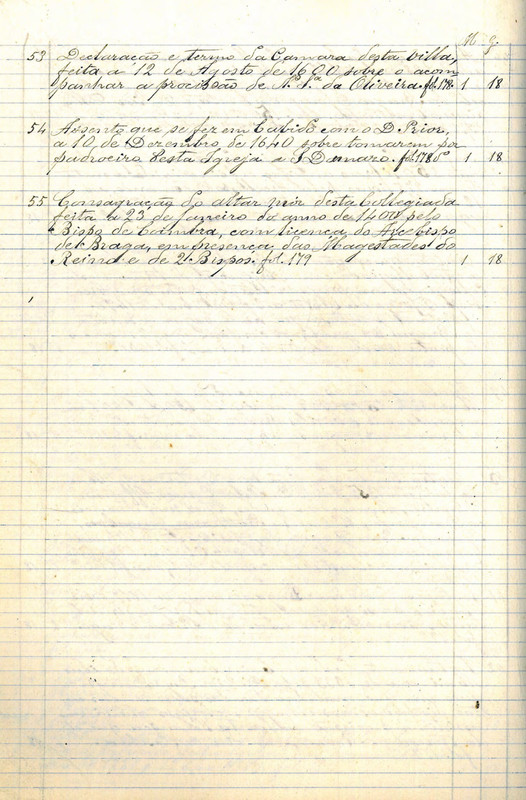 M. G.
53 Declaração e termo da Camara desta villa,
feita a 12 de Agosto de 1690 sobre o acom
panhar a procissão de N. Sra da Oliveira. fl. 178. 1 18
54 Assento que se fez em Cabido com o D. Prior,
a 10, de Dezembro, de 1640 sobre tomarem por
padroeiro desta Igreja a S Damazo. fl. 178 vo 1 18
55 Consagração do altar mór desta Collegiada
feita a 23 de Janeiro do anno de 1400 pelo
Bispo de Coimbra, com licença do Arcebispo
de Braga, em presença das Magestades do
Reino e de 2 Bispos. fol. 179 1 18